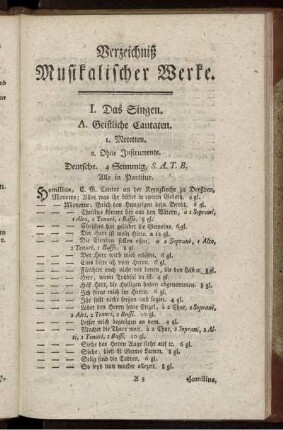 Verzeichniß
Musikalischer Werke.
I. Das Singen.
A. Geistliche Cantaten.
1. Moteten.
a. Ohne Instrumente.
Deutsche. 4 Stimmig, S. A. T. B.
Alle in Partitur.
Homilius, E. G. Cantor an der Kreuzkirche zu Dresden,
Motetto; Alles was ihr bittet in eurem Gebeth. 4 gl.
— — Motetto: Brich den Hungrigen dein Brodt. 6 gl.
— — Christus kommt her aus den Vätern, a 2 Soprani,
1 Alto, 2 Tenori, 1 Basso. 8 gl.
— — Christus hat geliebet die Gemeine. 6 gl.
— — Der Herr ist mein Hirte. a 12 gl.
— — Die Elenden sollen essen, a 2 Soprani, 1 Alto,
2 Tenori, 1 Basso. 8 gl.
— — Der Herr wird mich erlösen. 6 gl.
— — Eins bitte ich vom Herrn. 6 gl.
— — Fürchtet euch nicht vor denen, die den Leib 8 gl.
— — Herr, wenn Trübsal da ist. 4 gl.
— — Hilf Herr, die Heiligen haben abgenommen. 8 gl.
— — Ich freue mich im Herrn. 6 gl.
— — Ihr sollt nicht sorgen und sagen. 4 gl.
— — Lobet den Herrn 2 Chor, 2 Soprani,
2 Alti, 2 Tenori, 2 Bassi. 10 gl.
— — Lasset mich 4 gl.
— — Machet die Thore weit, a 2 Chor, 2 Soprani, 2 Alti,
2 Tenori, 2 Bassi. 10 gl.
— — Siehe des Herrn Auge siehet auf 6 gl.
— — Siehe, das ist Gottes Lamm. 8 gl.
— — Selig sind die Todten. 6 gl.
— — So seyd nun wacker allezeit. 8 gl.
A 3 Homilius,